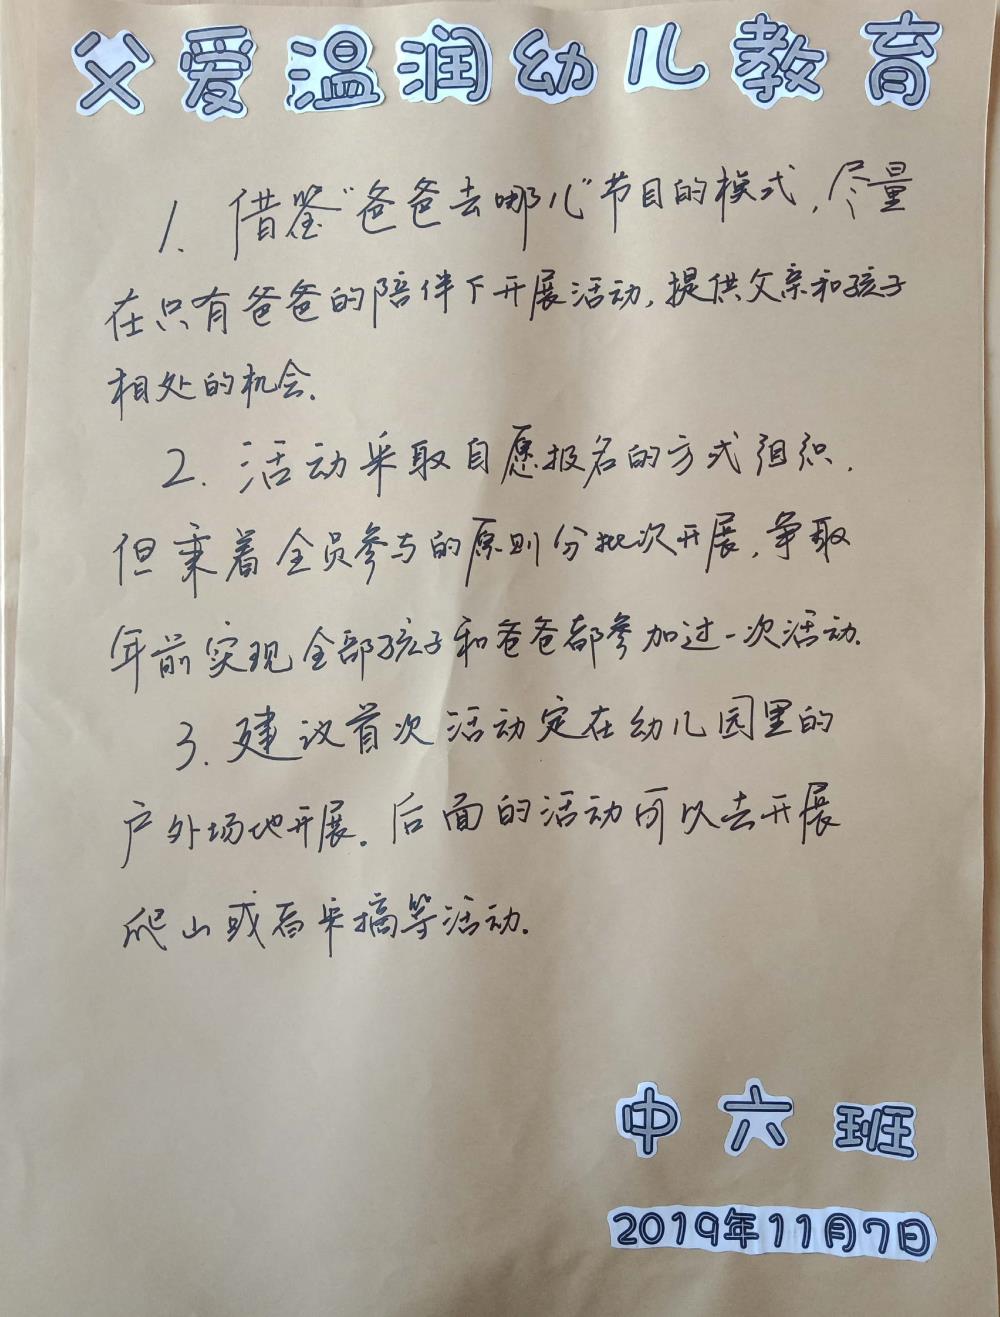 父爱温润幼儿教育
1. 借鉴“爸爸去哪儿”节目的模式，尽量
在只有爸爸的陪伴下开展活动，提供父亲和孩子
相处的机会.
2. 活动采取自愿报名的方式组织.
但秉着全员参与的原则分批次开展，争取
年前实现全部孩子和爸爸都参加过一次活动.
3. 建议首次活动定在幼儿园里的
户外场地开展. 后面的活动可以去开展
爬山或者采摘等活动.
中六班
2019年11月7日